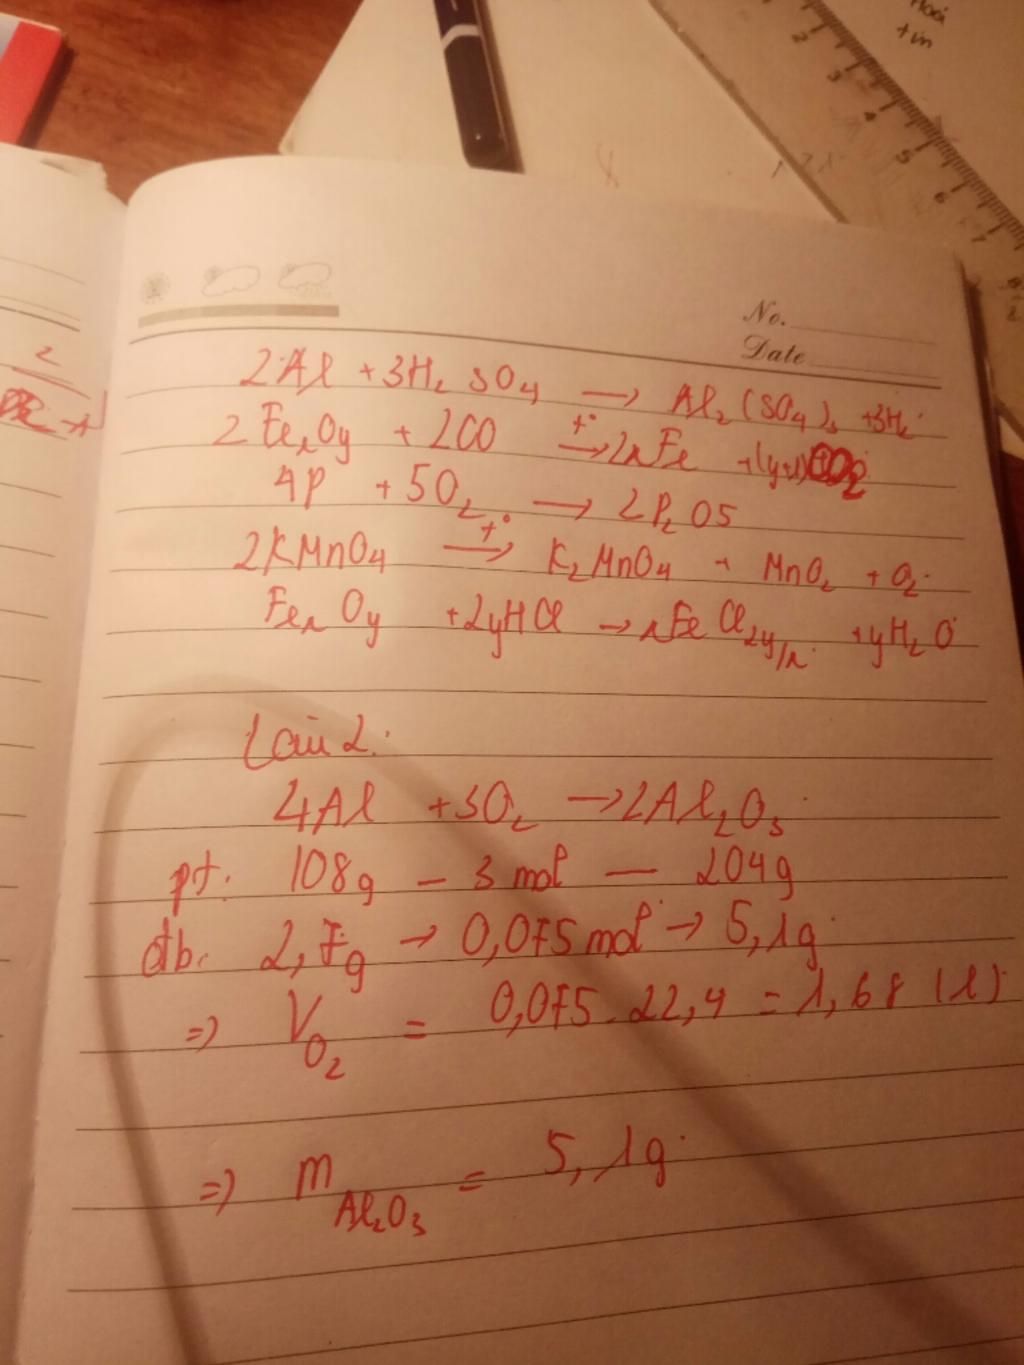 Hoá
+ím
2 3 4 5 6 7
No.
Date
2Al + 3H2SO4 → Al2(SO4)3 + 3H2
2FexOy + 2CO t°→ 2xFe + (y+1)CO2
4P + 5O2 t°→ 2P2O5
2KMnO4 t°→ K2MnO4 + MnO2 + O2
FexOy + 2yHCl → xFeCl2y/x + yH2O
Câu 2:
4Al + 3O2 → 2Al2O3
pt: 108g – 3 mol – 204g
đb: 2,7g → 0,075 mol → 5,1g
=> VO2 = 0,075 . 22,4 = 1,68 (l)
=> mAl2O3 = 5,1g